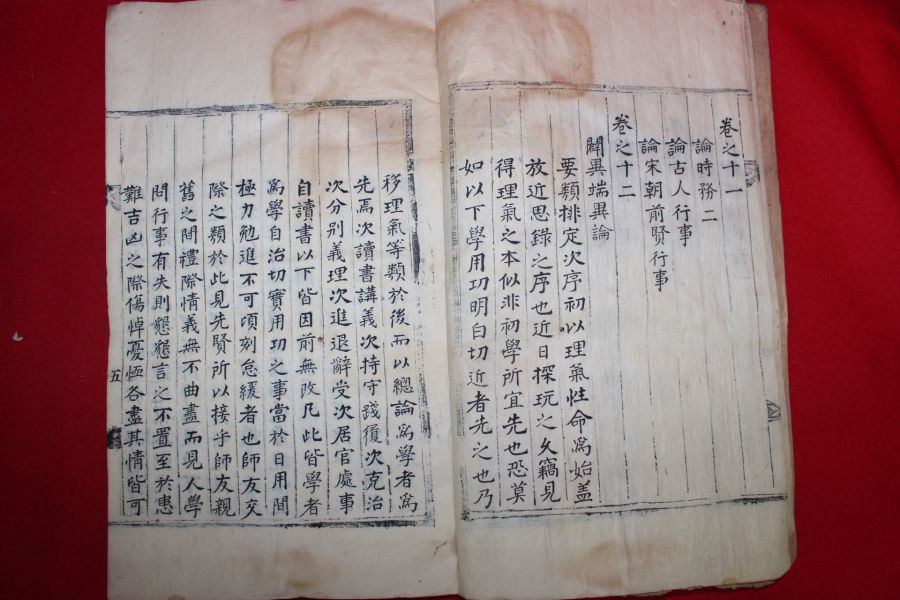 卷之十一
論時務二
論古人行事
論宋朝前賢行事
卷之十二
闢異端異論
要類排定次序初以理氣性命爲始盖
放近思錄之序也近日探玩之久竊見
得理氣之本似非初學所宜先也恐莫
如以下學用功明白切近者先之也乃
移理氣等類於後而以總論爲學者爲
先焉次讀書講義次持守踐履次克治
次分别義理次進退辭受次居官處事
自讀書以下皆因前無改凡此皆學者
爲學自治切實用功之事當於日用間
極力勉進不可頃刻怠緩者也師友交
際之類於此見先賢所以接乎師友親
舊之間禮際情義無不曲盡而見人學
問行事有失則懇懇言之不置至於患
難吉凶之際傷悼憂恤各盡其情皆可
五